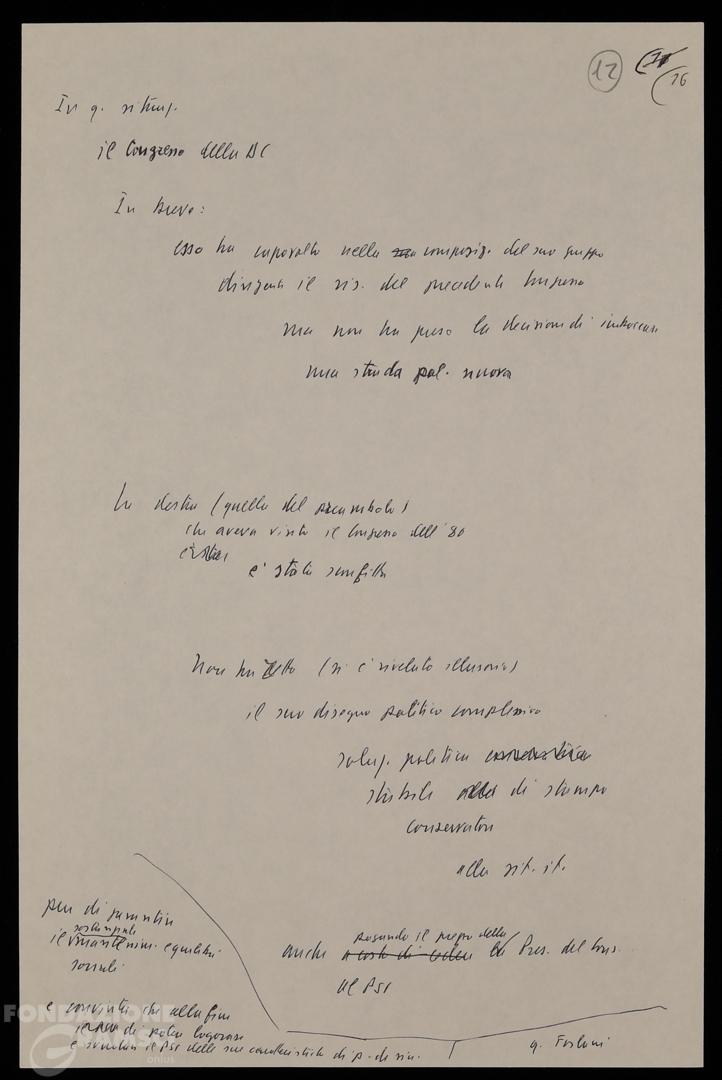 12
16
In q. situaz.
il Congresso della DC
In breve:
esso ha capovolto nella composiz. del suo gruppo
dirigente il ris. del precedente Congresso
ma non ha preso la decisione di imboccare
una strada pol. nuova
La destra (quella del preambolo)
che aveva vinto il Congresso dell'80
e' stata sconfitta
Non ha retto (si è rivelato illusorio)
il suo disegno politico complessivo
soluz. politica
stabile di stampo
conservatore
alla sit. it.
pur di garantire
il sostanziale
equilibri
sociali
pagando il prezzo della
anche Pres. del Cons.
al PSI
e convinta che alla fine
di poter logorare
e snaturare il PSI delle sue caratteristiche di p. di sin.
q. Forlani
FONDAZIONE
GRAMSCI
onlus